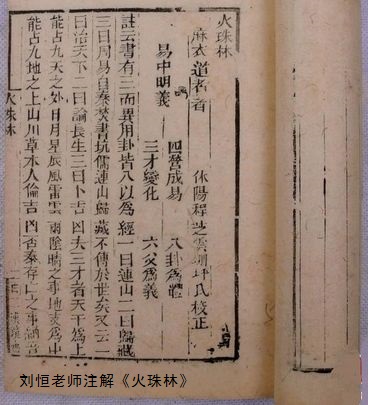 火珠林
麻衣道者著 休陽程芝雲珊坪氏校正
四營成易 八卦為體
易中明義
三才變化 六爻為義
註云書有三而異用卦皆八以為經一曰連山二曰歸藏
三曰周易自秦焚書坑儒連山歸藏不傳於世矣又云一
曰治天下二曰論長生三曰卜吉凶夫三才者天爻為上
能占九天之外日月星辰風雷雲雨陰晴之事地爻為中
能占九地之上山川草木人倫吉凶否泰存亡之事
火珠林
刘恒老师注解《火珠林》